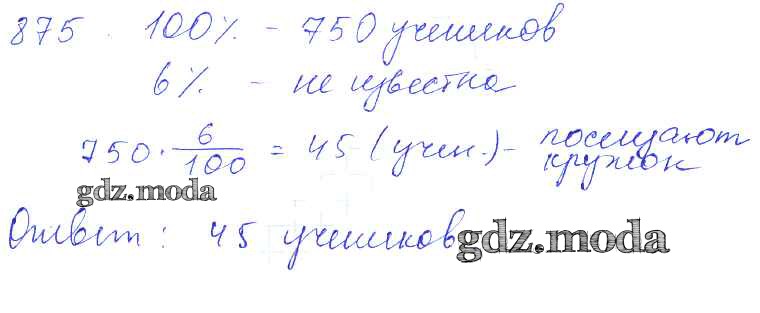 875. 100% - 750 учеников
6% - не известно
750 · 6/100 = 45 (учен.) - посещают кружок
gdz.moda
Ответ: 45 учеников
gdz.moda